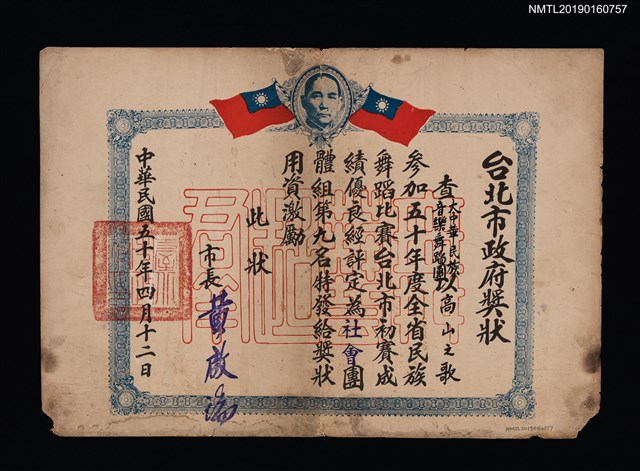 NMTL20190160757
台北市政府獎狀
查大中華民族音樂舞蹈團以高山之歌
參加五十年度全省民族
舞蹈比賽台北市初賽成
績優良經評定為社會團
體組第九名特發給獎狀
用資激勵
此狀
市長 黃啟瑞
中華民國五十年四月十二日
NMTL20190160757